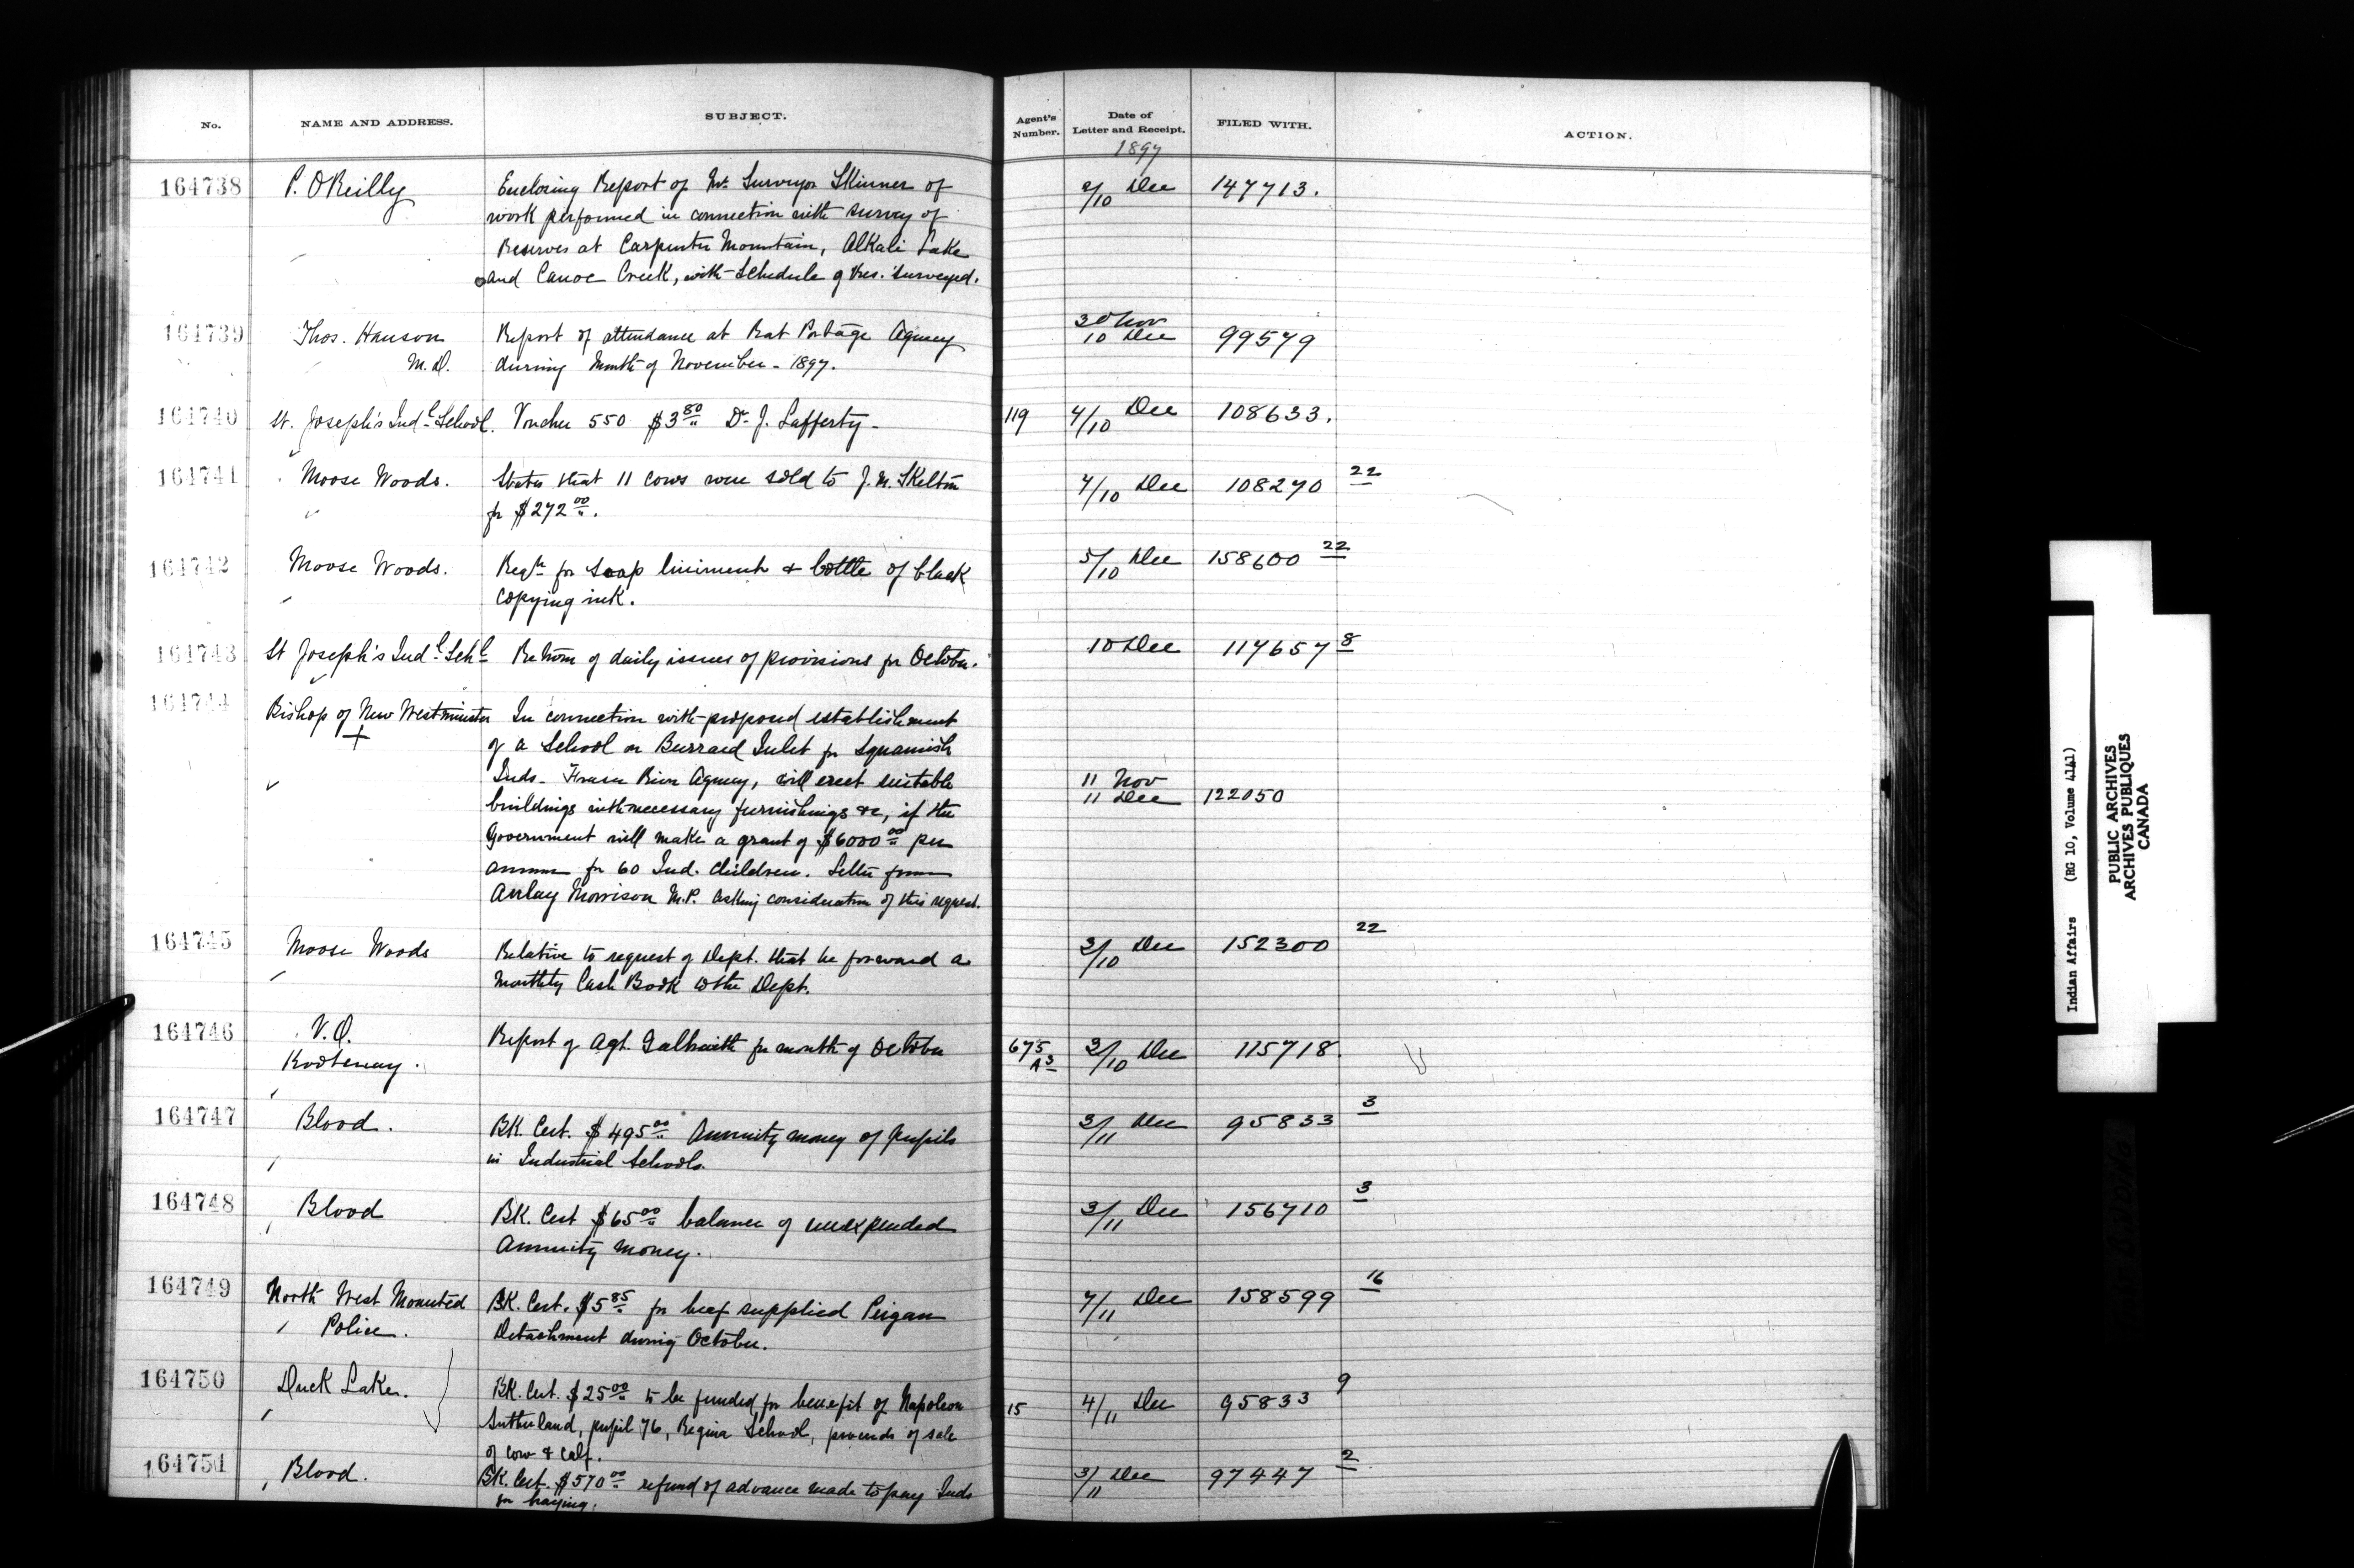 No. NAME AND ADDRESS. SUBJECT. Agent's Number. Date of Letter and Receipt. FILED WITH. ACTION.
1897
164738 P. O'Reilly Enclosing Report of Mr. Surveyor Skinner of 2/10 Dec 147713.
work performed in connection with survey of
Reserves at Carpenter Mountain, Alkali Lake
and Canoe Creek, with Schedule of Res. surveyed.
164739 Thos. Hanson Report of attendance at Rat Portage Agency 30 Nov 10 Dec 99579
M.D. during Month of November - 1897.
164740 St. Joseph's Indl. School. Voucher 550 $3 80 Dr. J. Lafferty - 119 4/10 Dec 108633.
164741 Moose Woods. States that 11 cows were sold to J. N. Skelton 7/10 Dec 108270 22
for $272 00.
164742 Moose Woods. Reqn for soap liniment & bottle of black 5/10 Dec 158600 22
copying ink.
164743 St Joseph's Indl. Schl. Return of daily issues of provisions for October. 10 Dec 117657 8
164744 Bishop of New Westminster In connection with proposed establishment
+ of a School on Burrard Inlet for Squamish
Inds - Fraser River Agency, will erect suitable 11 Nov
buildings with necessary furnishings &c, if the 11 Dec 122050
Government will make a grant of $6000 00 per
annum for 60 Ind. children. Letter from
Aulay Morrison M.P. asking consideration of this request.
164745 Moose Woods Relative to request of Dept. that he forward a 3/10 Dec 152300 22
Monthly Cash Book to the Dept.
164746 V.O. Report of Agt. Galbraith for month of October 675 A3 3/10 Dec 115718.
Kootenay.
164747 Blood. BK. Cert. $495 00 Annuity money of pupils 3/11 Dec 95833 3
in Industrial Schools.
164748 Blood BK. Cert $65 00 balance of unexpended 3/11 Dec 156710 3
Annuity money.
164749 North West Mounted BK. Cert. $5 85 for beef supplied Peigan 7/11 Dec 158599 16
Police. Detachment during October.
164750 Duck Lake. BK. Cert. $25 00 to be funded for benefit of Napoleon 15 4/11 Dec 95833 9
Sutherland, pupil 76, Regina School, proceeds of sale
of cow & calf.
164751 Blood. BK. Cert. $570 00 refund of advance made to pay Inds 3/11 Dec 97447 2
for haying.
Indian Affairs (RG 10, Volume 4141)
PUBLIC ARCHIVES
ARCHIVES PUBLIQUES
CANADA